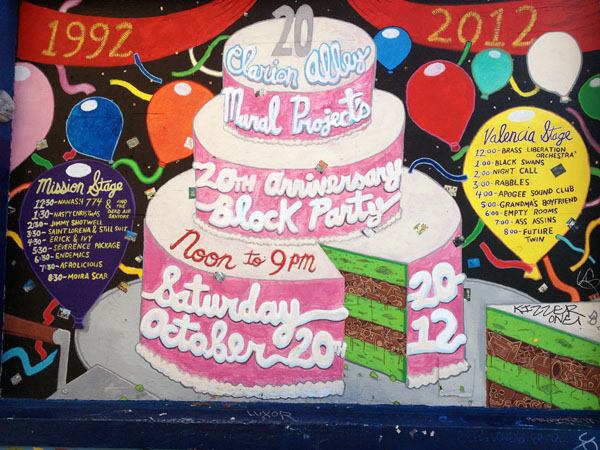 1992
20
2012
Clarion Alley
Mural Project's
20th anniversary
Block Party
Noon to 9 pm
Saturday
October 20th
20
12
Mission Stage
12:30-NANASH 774 & AND THE DEAD AIR SAVIORS
1:30-NASTY CHRISTMAS
2:30-JIMMY SHOTWELL
3:30-SAINT LORENA & STILL SUIT
4:30-ERICK & IVY
5:30-SEVERENCE PACKAGE
6:30-ENDEMICS
7:30-AFROLICIOUS
8:30-MOIRA SCAR
Valencia Stage
12:00-BRASS LIBERATION
ORCHESTRA
1:00-BLACK SWANS
2:00-NIGHT CALL
3:00-RABBLES
4:00-APOGEE SOUND CLUB
5:00-GRANDMA'S BOYFRIEND
6:00-EMPTY ROOMS
7:00-ASS ASSINS
8:00-FUTURE
TWIN
KIZZER
ONE1
LUXOR